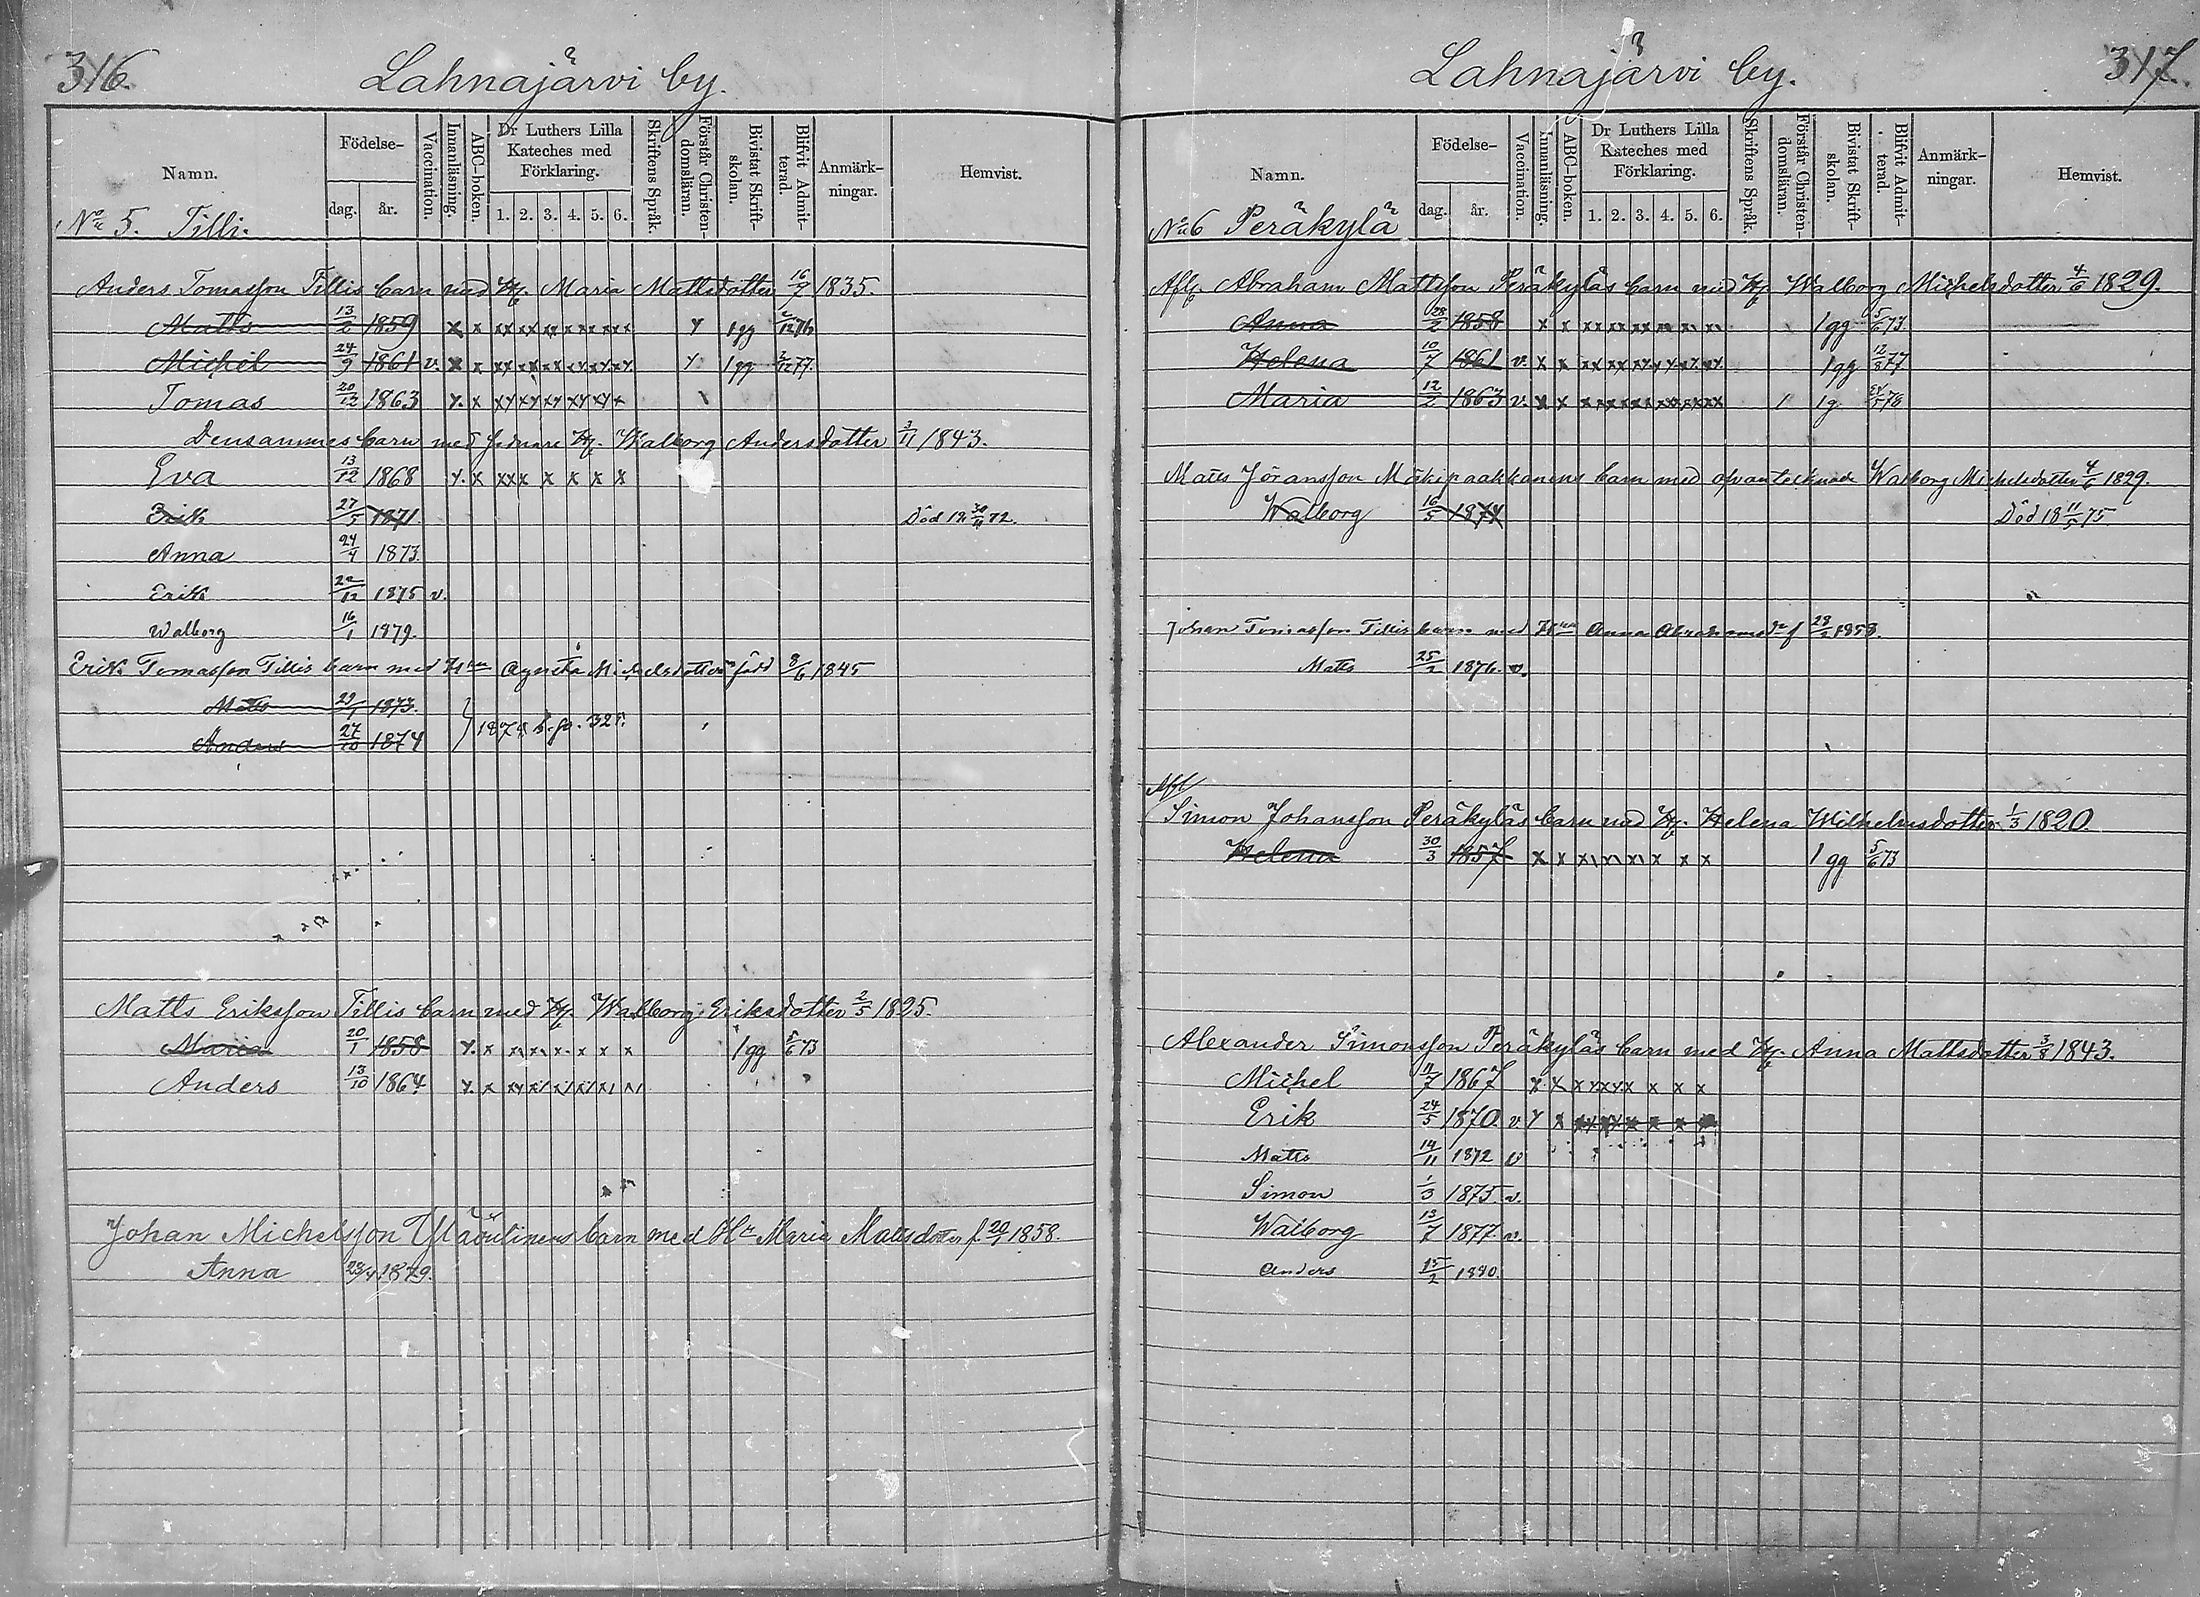 316.
Lahnajärvi by.
Namn.
Födelse-
dag.
år.
Vaccination.
Innanläsning.
ABC-boken.
Dr Luthers Lilla
Kateches med
Förklaring.
1. 2. 3. 4. 5. 6.
Skriftens Språk.
Förstår Christen-
domsläran.
Bivistat Skrift-
skolan.
Blifvit Admit-
terad.
Anmärk-
ningar.
Hemvist.
No 5. Tilli.
Anders Tomasson Tillis barn med H. Maria Mattsdotter 16/7 1835.
Matts 13/2 1859 x x xx xx xx x x x x x y 1 gg 2/12 76
Michel 24/9 1861 v. x x xx x x x x x x y x y x y. y 1 gg 2/12 77.
Tomas 20/12 1863 y. x xy xy xy xy xy x \
Densammes barn med H. Walborg Andersdotter 3/11 1843.
Eva 13/12 1868 y. x xx x x x x x
Erik 27/5 1871. Död 18 30/11 72.
Anna 24/4 1873.
Erik 22/12 1875 v.
Walborg 16/1 1879.
Erik Tomasson Tillis barn med Agneta Michelsdotter född 8/6 1845
Matts 29/1 1873.
Anders 27/10 1874 } 1878 b. fr. 325.
Matts Eriksson Tillis barn med H. Walborg Eriksdotter 2/5 1825.
Maria 20/1 1858 y. x x x x x x x 1 gg 5/6 73
Anders 13/10 1864 y. x xy x/ x/ x/ x/ x/
Johan Michelsson barn med Hr Maria Mattsdotter f. 20/1 1858.
Anna 28/4 1879.
317.
Lahnajärvi by.
Namn.
Födelse-
dag.
år.
Vaccination.
Innanläsning.
ABC-boken.
Dr Luthers Lilla
Kateches med
Förklaring.
1. 2. 3. 4. 5. 6.
Skriftens Språk.
Förstår Christen-
domsläran.
Bivistat Skrift-
skolan.
Blifvit Admit-
terad.
Anmärk-
ningar.
Hemvist.
No 6 Peräkylä
Afl. Abraham Mattsson Peräkyläs barn med H. Walborg Michelsdotter 4/6 1829.
Anna 28/2 1858 x x xx xx xx x x x x 1 gg 5/6 73.
Helena 10/7 1861 v. x x xx xx xy y. x y. 1 gg 12/8 77
Maria 12/2 1863 v. x x xx xx xx xx xx xx 1 1 g. 24/5 78
Matts Jöransson Mäkipaakkanens barn med ofvantecknade Walborg Michelsdotter 4/6 1829.
Walborg 16/5 1874 Död 18 11/5 75
Johan Tomasson Tillis barn med Anna Abrahamsdr f 28/2 1858.
Matts 25/2 1876. v.
Afl.
Simon Johansson Peräkyläs barn med H. Helena Wilhelmsdotter 1/3 1820.
Helena 30/3 1857 x x x\ x\ x\ x x x 1 gg 5/6 73
Alexander Simonsson Peräkyläs barn med H. Anna Mattsdotter 3/8 1843.
Michel 11/7 1867 y. x x y x y x x x x
Erik 24/5 1870. v y x xx xx x x x x
Matts 14/11 1872 v
Simon 1/3 1875. v.
Walborg 13/7 1877. v.
Anders 15/2 1880.